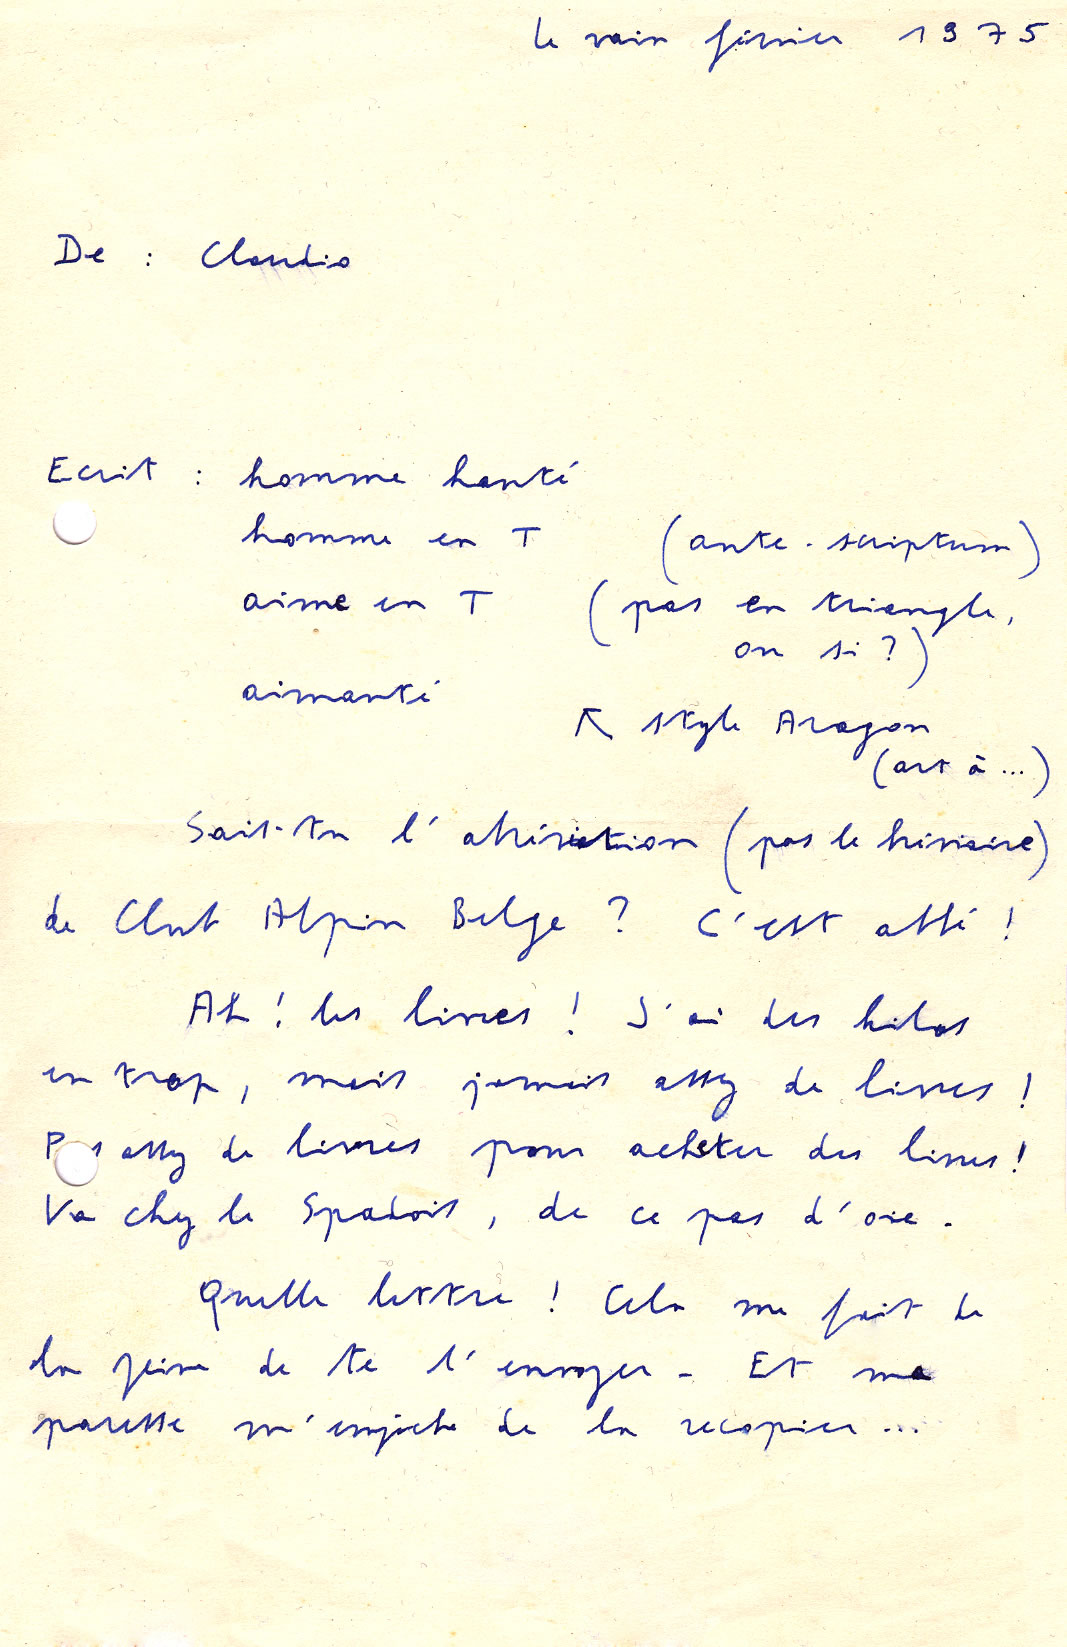 le vain février 1975
De : Claudio
Ecrit : homme hanté
homme en T (ante-scriptum)
aime en T (pas en triangle,
ou si ?)
aimanté
↖ style Aragon
(art à ...)
Sait-tu l'abréviation (pas le bréviaire)
de Club Alpin Belge ? C'est abbé !
Ah ! les livres ! J'ai des kilos
en trop, mais jamais assez de livres !
Pas assez de livres pour acheter des livres !
Va chez le Spadois, de ce pas d'oie.
Quelle lettre ! Cela me fait de
la peine de te l'envoyer. Et ma
paresse m'empêche de la recopier...